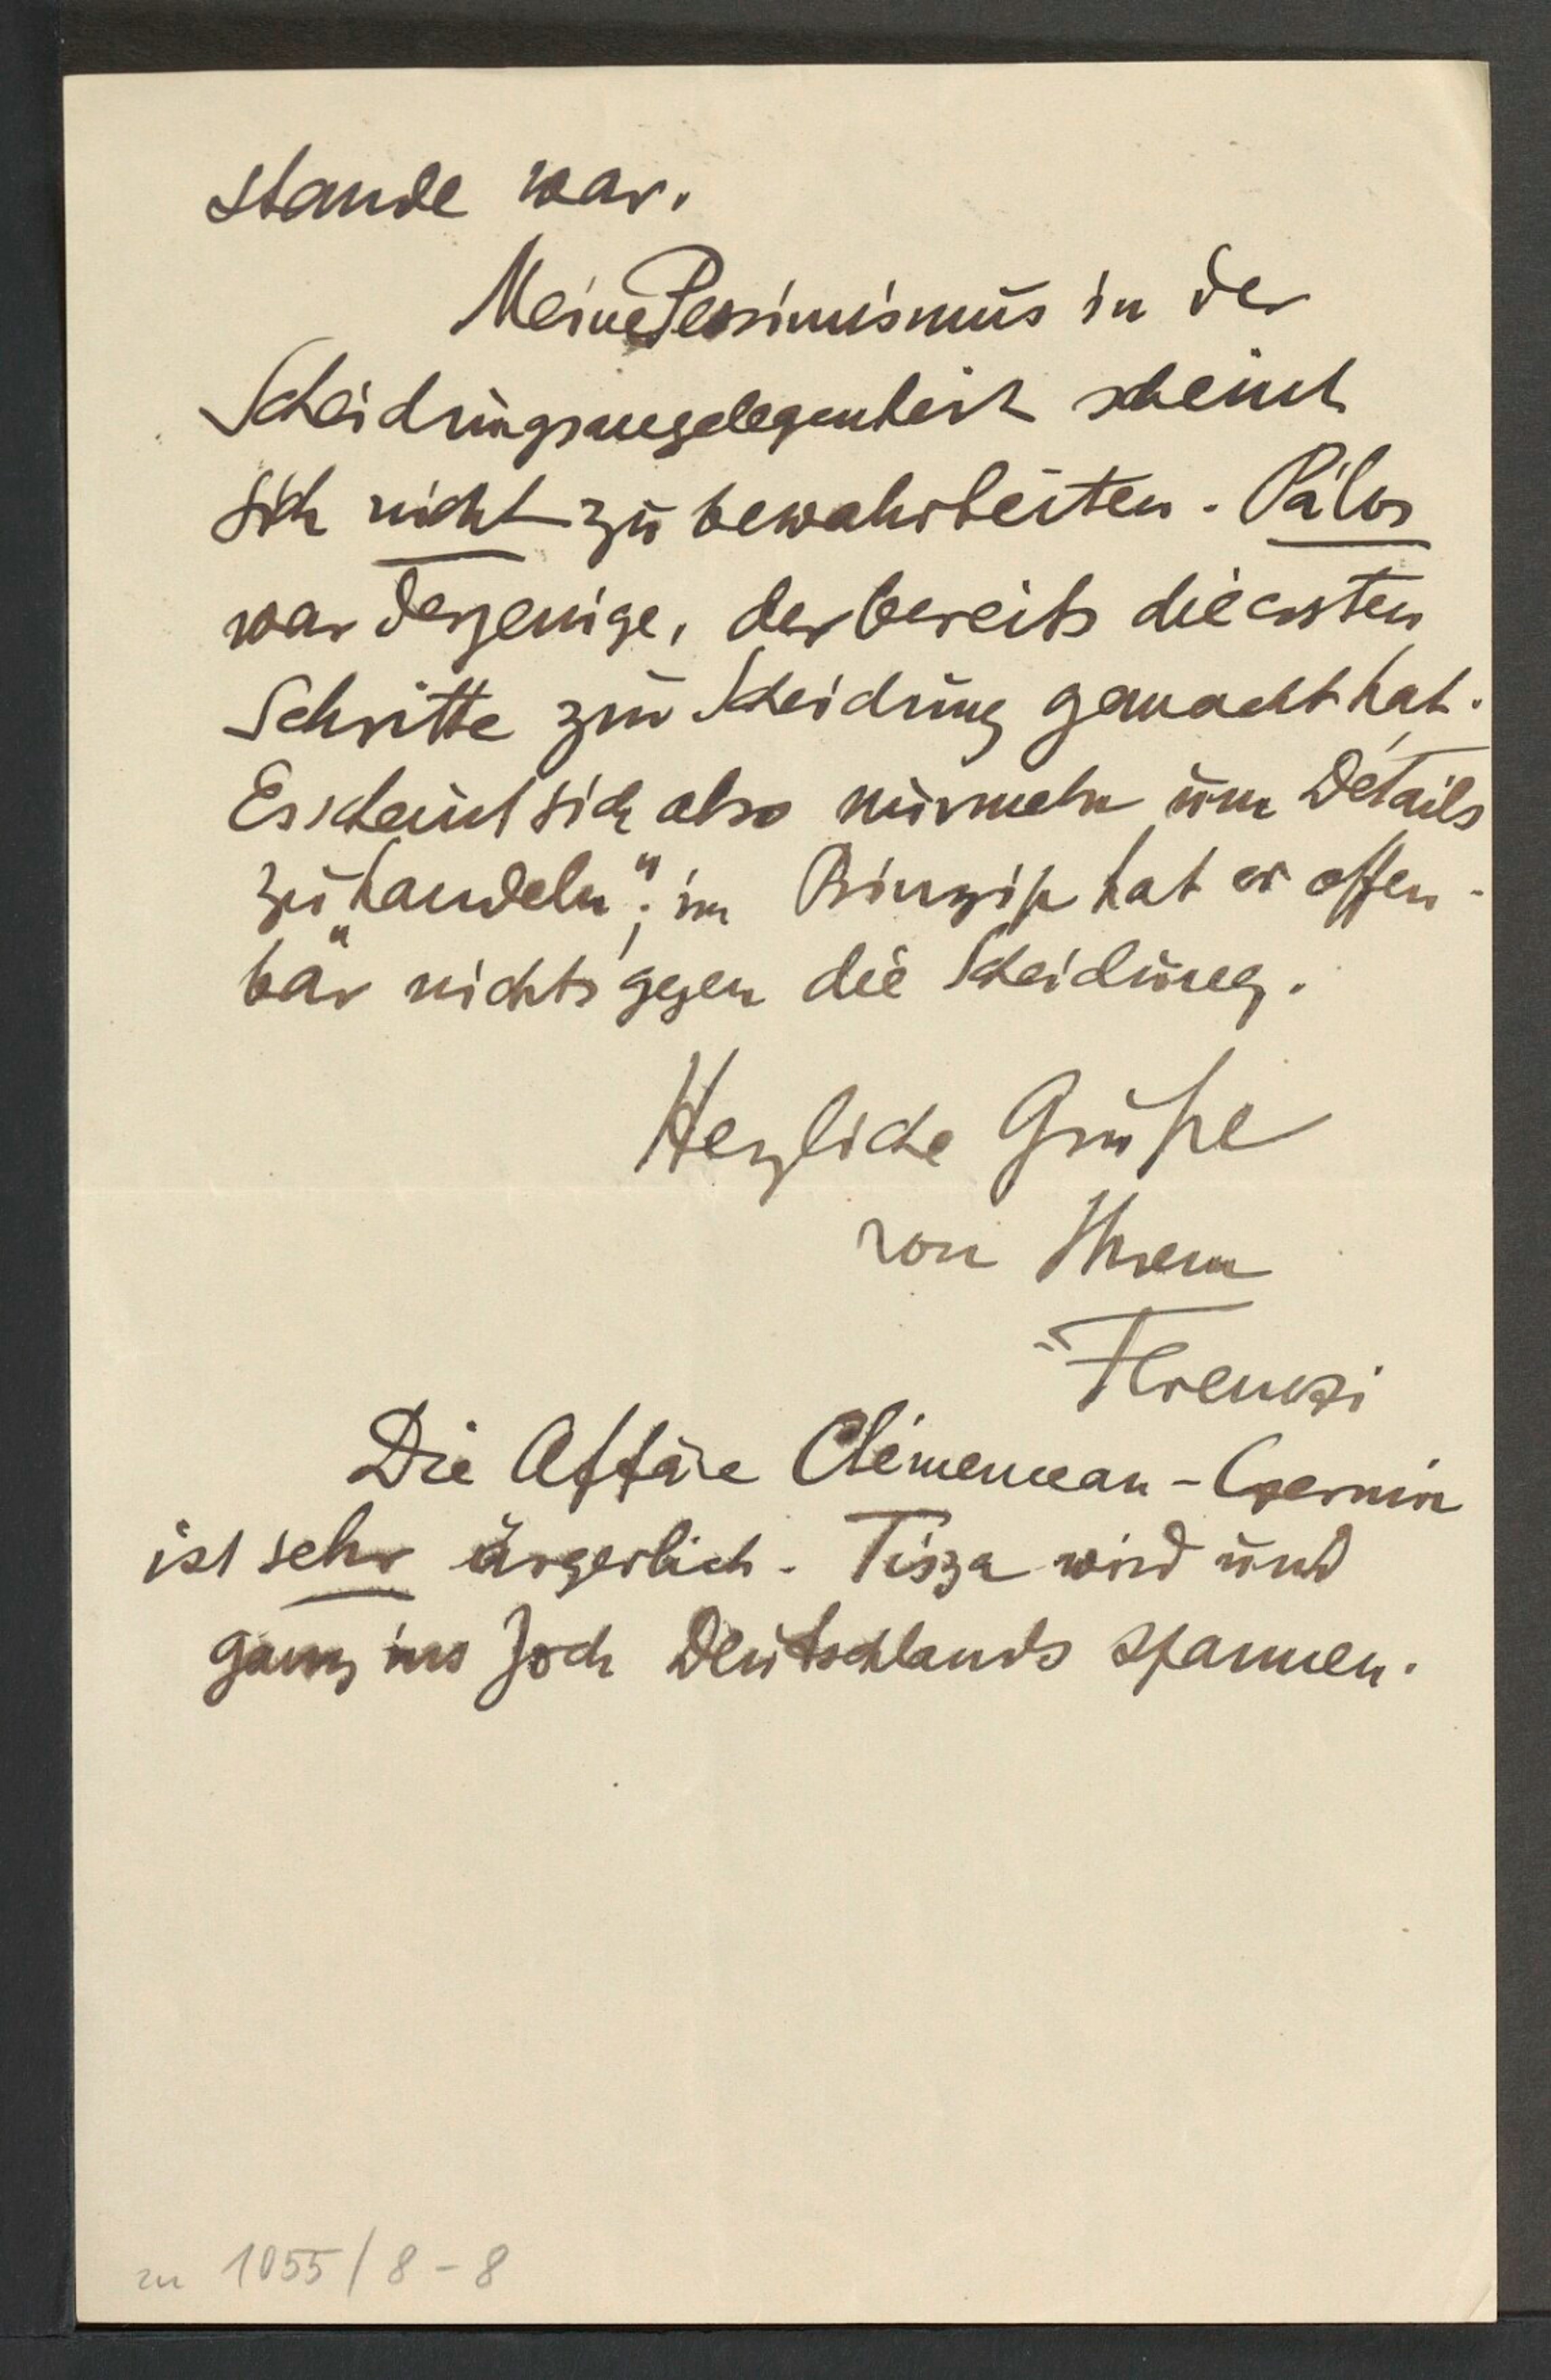 stande war.
Meine Pessimismus in der
Scheidungsangelegenheit scheint
sich nicht zu bewahrheiten. Pálos
war derjenige, der bereits die ersten
Schritte zur Scheidung gemacht hat.
Es scheint sich also nurmehr um Détails
zu „handeln“; im Prinzip hat er offen-
bar nichts gegen die Scheidung.
Herzliche Grüße
von Ihrem
Ferenczi
Die Affäre Clémenceau-Czernin
ist sehr ärgerlich. Tisza wird und
ganz ins Joch Deutschlands spannen.
zu 1055/8-8